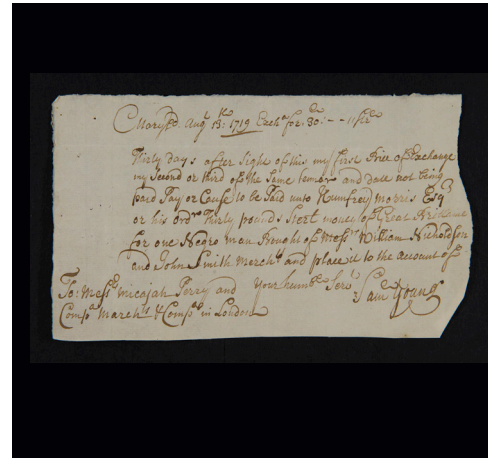 Maryld. Augt 13th: 1719 Excha for: 30:--
Thirty days after Sight of this my first Bill of Exchange
my Second or third of the Same tenour and date not being
paid Pay or Cause to be Paid unto Humfrey morris Esqr
or his ordr Thirty pounds Sterl money of Great
for one Negro man Bought of Messrs William Nicholdson
and John Smith Merchts and place it to the account of
To: Messrs micajah Perry and Your humbe Servt
Compa marchts & Compa in London Sam Young